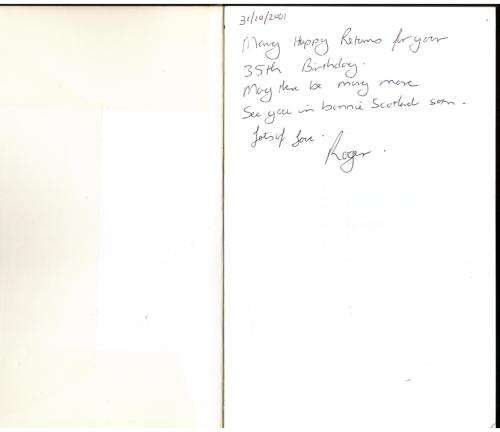 31/10/2001
Many Happy Returns for your
35th Birthday.
May there be many more
See you in bonnie Scotland soon.
Lots of love.
Roger.